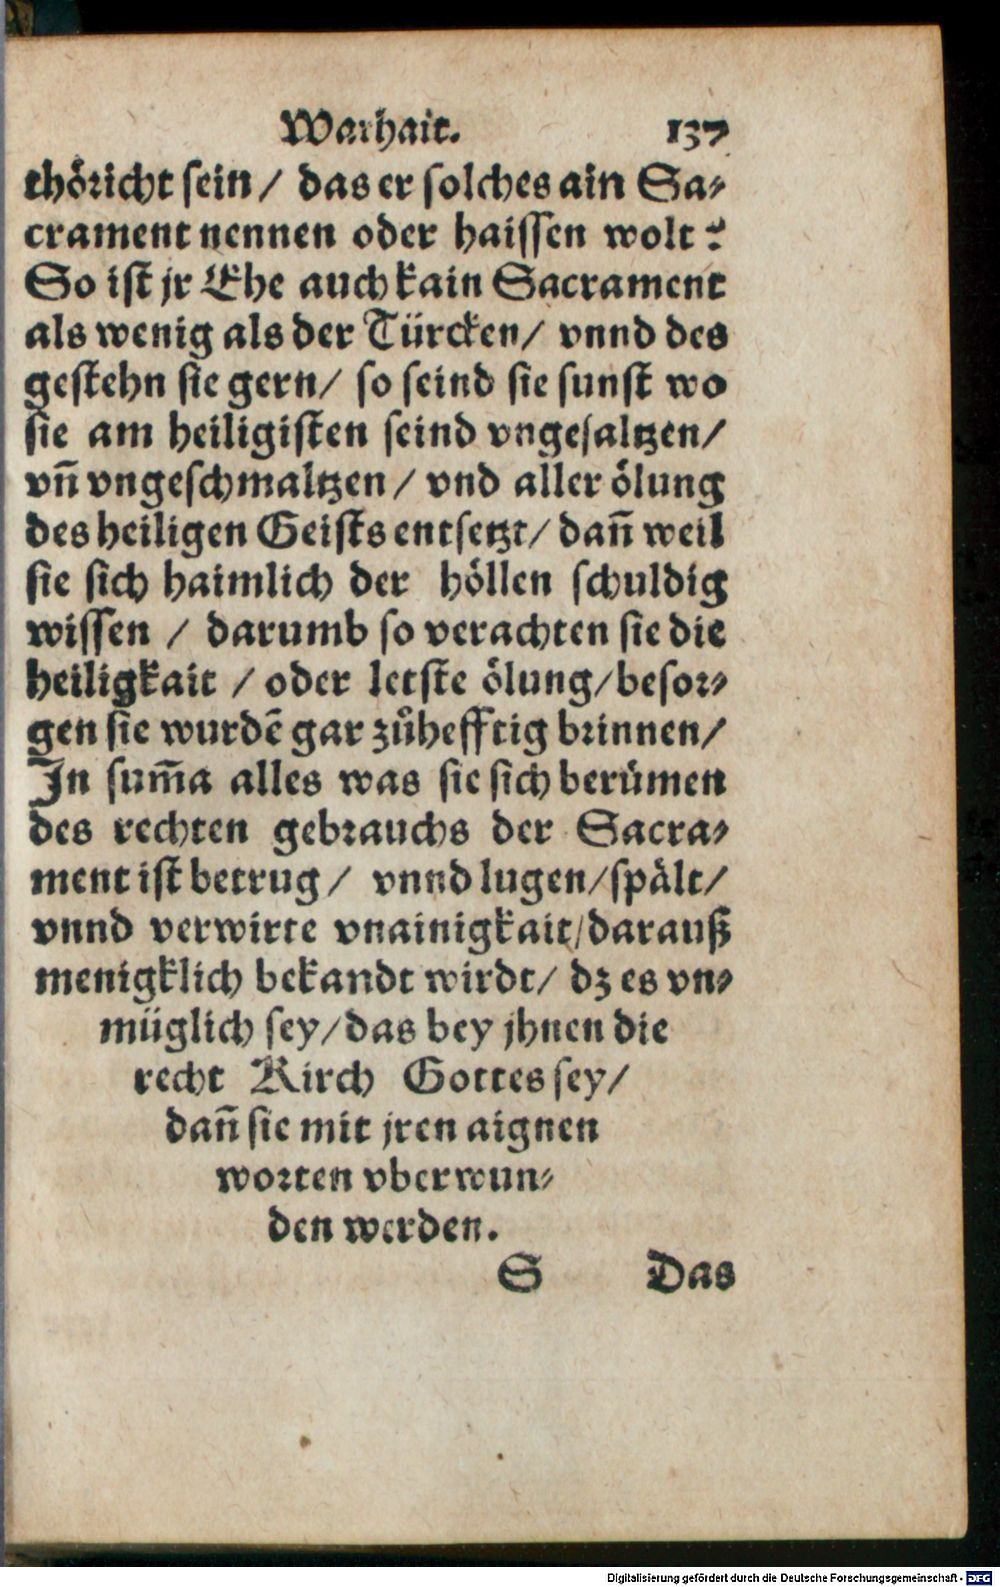 Warhait. 137
thöricht sein / das er solches ain Sa-
crament nennen oder haissen wolt?
So ist jr Ehe auch kain Sacrament
als wenig als der Türcken / vnnd des
gestehn sie gern / so seind sie sunst wo
sie am heiligisten seind vngesaltzen /
vñ vngeschmaltzen / vnd aller ölung
des heiligen Geists entsetzt / dañ weil
sie sich haimlich der höllen schuldig
wissen / darumb so verachten sie die
heiligkait / oder letste ölung / besor-
gen sie wurdẽ gar zůhefftig brinnen /
In sum̃a alles was sie sich berümen
des rechten gebrauchs der Sacra-
ment ist betrug / vnnd lugen / spält /
vnnd verwirte vnainigkait / darauß
menigklich bekandt wirdt / dz es vn-
müglich sey / das bey jhnen die
recht Kirch Gottes sey /
dañ sie mit jren aignen
worten vberwun-
den werden.
S Das
Digitalisierung gefördert durch die Deutsche Forschungsgemeinschaft - DFG